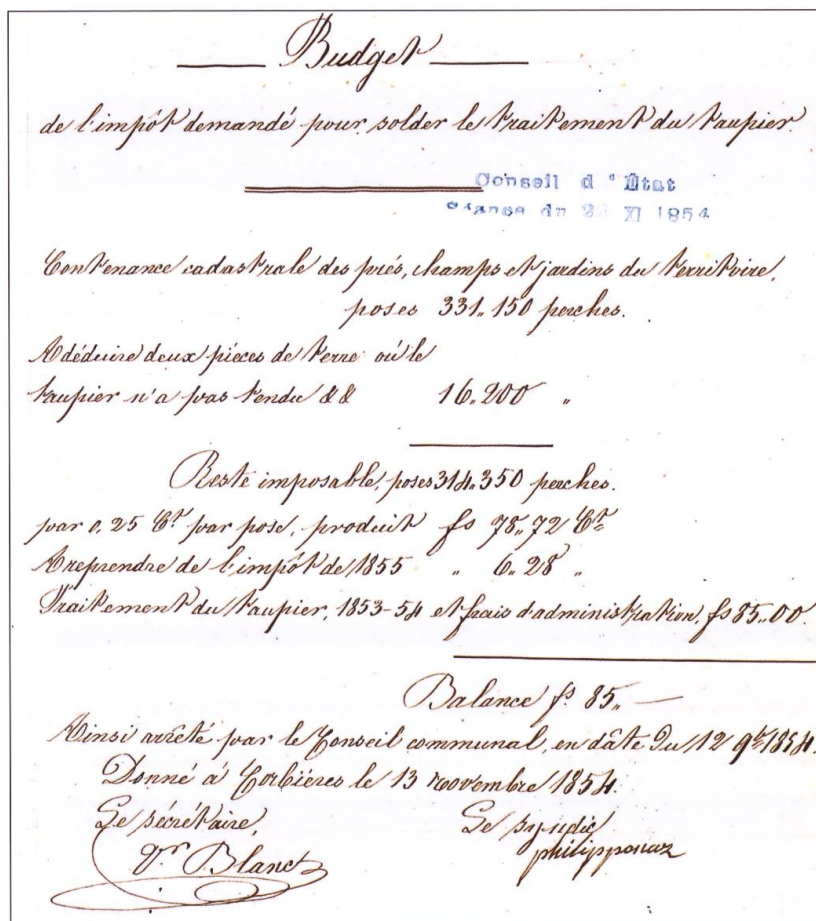 Budget
de l'impôt demandé pour solder le traitement du taupier.
Conseil d'État
séance du 22 XI 1854
Contenance cadastrale des prés, champs et jardins du territoire,
poses 331„150 perches.
A déduire deux pièces de terre où le
taupier n'a pas tendu && 16„200 „
Reste imposable, poses 314„350 perches.
par 0,25 Ct par pose, produit fs 78„72 Ct
A reprendre de l'impôt de 1855 „ 6„28 „
Traitement du taupier, 1853-54 et frais d'administration, fs 85„00.
Balance fs 85„ —
Ainsi arrêté par le Conseil communal, en dâte du 12 9bre 1854.
Donné à Corbières le 13 novembre 1854.
Le sécrétaire, Le syndic
Blanc philipponaz